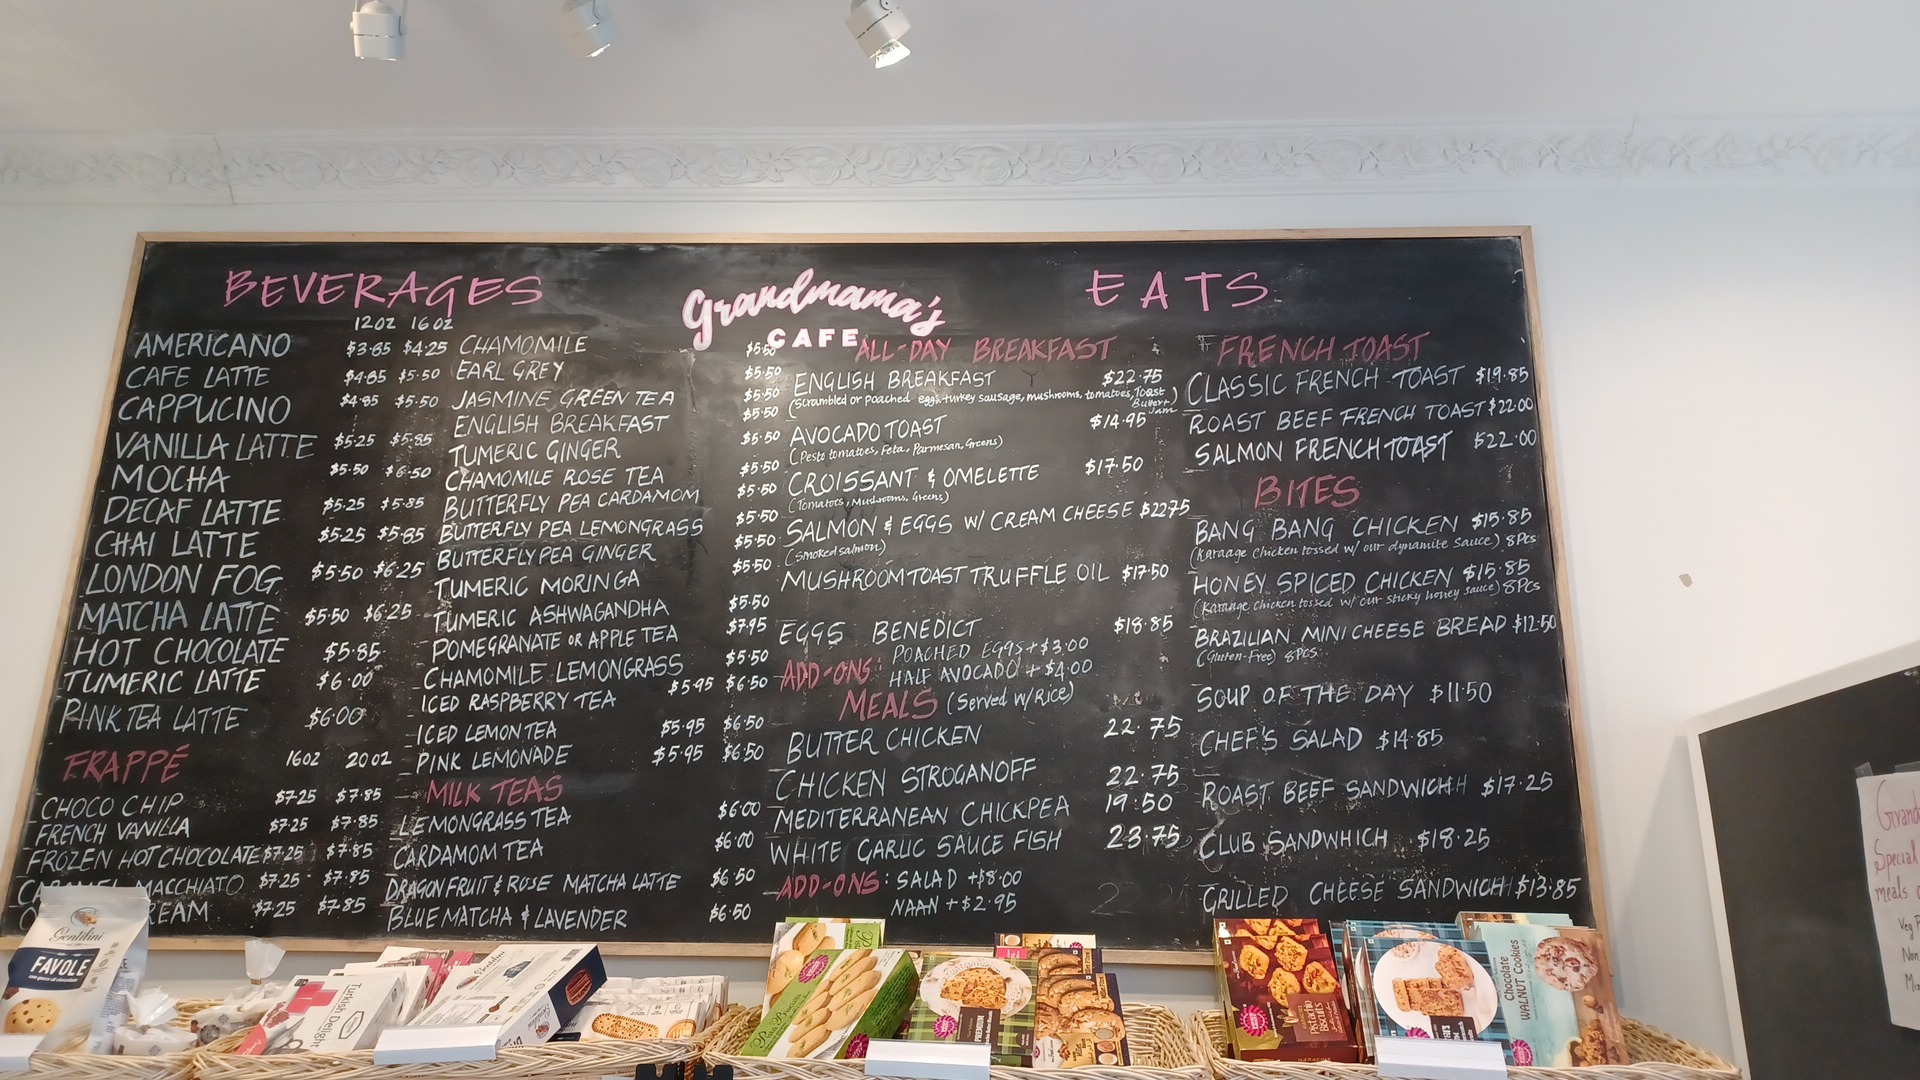 BEVERAGES
12oz 16oz
AMERICANO $3.85 $4.25
CAFE LATTE $4.85 $5.50
CAPPUCINO $4.85 $5.50
VANILLA LATTE $5.25 $5.85
MOCHA $5.50 $6.50
DECAF LATTE $5.25 $5.85
CHAI LATTE $5.25 $5.85
LONDON FOG $5.50 $6.25
MATCHA LATTE $5.50 $6.25
HOT CHOCOLATE $5.85
TUMERIC LATTE $6.00
PINK TEA LATTE $6.00
FRAPPÉ 16oz 20oz
CHOCO CHIP $7.25 $7.85
FRENCH VANILLA $7.25 $7.85
FROZEN HOT CHOCOLATE $7.25 $7.85
CARAMEL MACCHIATO $7.25 $7.85
$7.25 $7.85
CHAMOMILE $5.50
EARL GREY $5.50
JASMINE GREEN TEA $5.50
ENGLISH BREAKFAST $5.50
TUMERIC GINGER $5.50
CHAMOMILE ROSE TEA $5.50
BUTTERFLY PEA CARDAMOM $5.50
BUTTERFLY PEA LEMONGRASS $5.50
BUTTERFLY PEA GINGER $5.50
TUMERIC MORINGA $5.50
TUMERIC ASHWAGANDHA $5.50
POMEGRANATE OR APPLE TEA $7.95
CHAMOMILE LEMONGRASS $5.50
ICED RASPBERRY TEA $5.95 $6.50
ICED LEMON TEA $5.95 $6.50
PINK LEMONADE $5.95 $6.50
MILK TEAS
LEMONGRASS TEA $6.00
CARDAMOM TEA $6.00
DRAGONFRUIT & ROSE MATCHA LATTE $6.50
BLUE MATCHA & LAVENDER $6.50
Grandmama's
CAFE
EATS
ALL-DAY BREAKFAST
ENGLISH BREAKFAST $22.75
(Scrambled or poached eggs, turkey sausage, mushrooms, tomatoes, Toast
Butter+
Jam)
AVOCADO TOAST $14.95
(Pesto tomatoes, Feta, Parmesan, Greens)
CROISSANT & OMELETTE $17.50
(Tomatots, Mushrooms, Greens)
SALMON & EGGS W/ CREAM CHEESE $22.75
(Smoked salmon)
MUSHROOM TOAST TRUFFLE OIL $17.50
EGGS BENEDICT $18.85
ADD-ONS: POACHED EGGS + $3.00
HALF AVOCADO + $4.00
MEALS (Served w/Rice)
BUTTER CHICKEN 22.75
CHICKEN STROGANOFF 22.75
MEDITERRANEAN CHICKPEA 19.50
WHITE GARLIC SAUCE FISH 23.75
ADD-ONS: SALAD +$8.00
NAAN + $2.95
FRENCH TOAST
CLASSIC FRENCH TOAST $19.85
ROAST BEEF FRENCH TOAST $22.00
SALMON FRENCH TOAST $22.00
BITES
BANG BANG CHICKEN $15.85
(Karaage Chicken tossed w/ our dynamite Sauce) 8Pcs
HONEY SPICED CHICKEN $15.85
(Karaage Chicken tossed w/ our sticky honey sauce) 8Pcs
BRAZILIAN MINI CHEESE BREAD $12.50
(Gluten-Free) 8PCS
SOUP OF THE DAY $11.50
CHEF'S SALAD $14.85
ROAST BEEF SANDWICHH $17.25
CLUB SANDWHICH $18.25
GRILLED CHEESE SANDWICH $13.85
Special
meals
Gentilini
FAVOLE
Turkish
Delight
Gentilini
PREMIUM
Pistachio
Biscuits
Chocolate
WALNUT Cookies